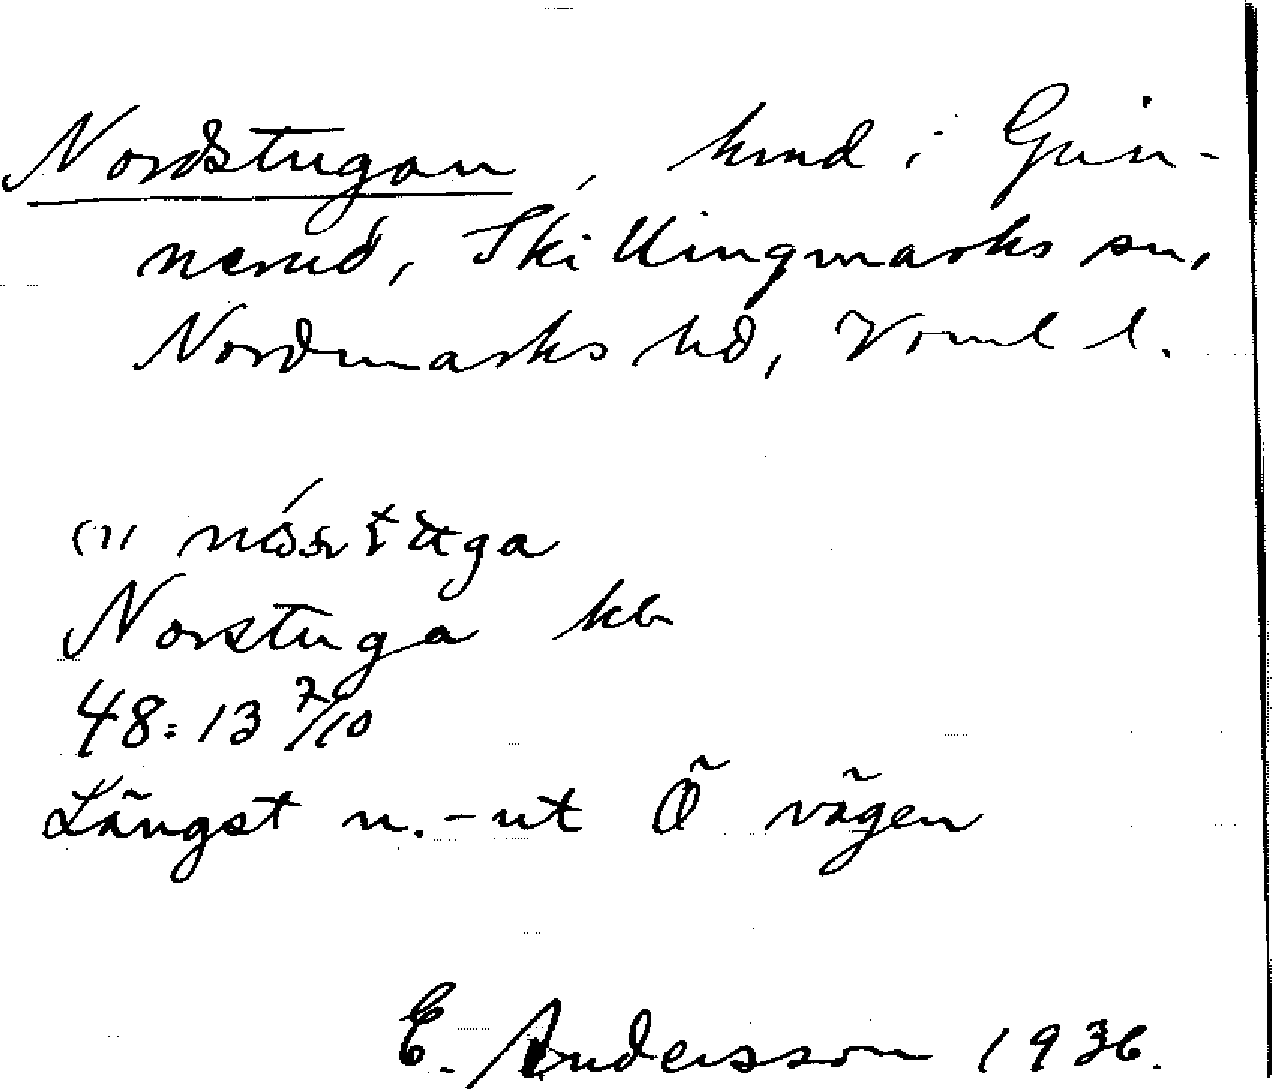 Nordstugan, hmd i Gun-
nerud, Skillingmarks sn,
Nordmarks hd, Vrml l.
Norstuga kb
48:13 7/10
Längst n.-ut Ö vägen
E. Andersson 1936.